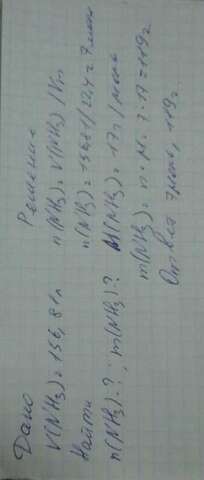 Дано
V(NH₃) = 156,81л
Найти
n(NH₃)-?, m(NH₃)-?
Решение
n(NH₃) = V(NH₃) / Vm
n(NH₃) = 156,81/22,4 = 7 моль
M(NH₃) = 17г/моль
m(NH₃) = n·M = 7·17 = 119г
Ответ 7моль, 119г.